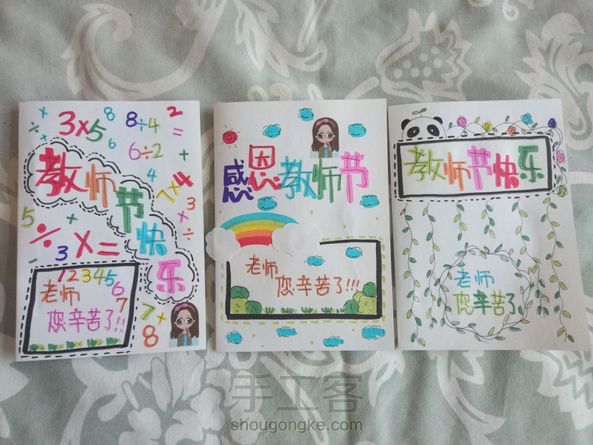 3×5
8
8÷4
2
=
6÷2
4
7×4
3
教师节快乐
5
÷
3
×
=
8
1234567
老师
您辛苦了!!!
7+
8
感恩教师节
老师
您辛苦了!!!
教师节快乐
老师
您辛苦了
手工客
shougongke.com